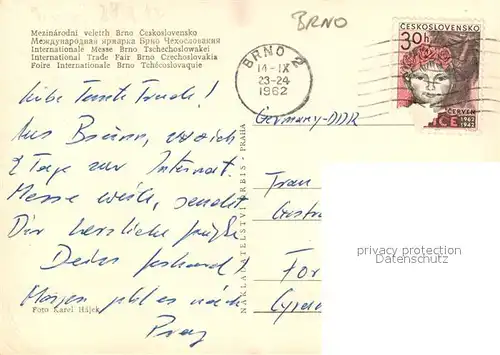 BRNO
Mezinárodní veletrh Brno Československo
Международная ярмарка Брно Чехословакия
Internationale Messe Brno Tschechoslowakei
International Trade Fair Brno Czechoslovakia
Foire Internationale Brno Tchécoslovaquie
BRNO 2
14-IX
23-24
1962
ČESKOSLOVENSKO
30h
ČERVEN
1962
1942
Liebe Tante
Aus Brünn, wo ich
2 Tage zur Internat.
Messe weile, sendet
Dir herzliche Grüße
Dein
Morgen geht es nach
Prag
Germany-DDR
Frau
NAKLADATELSTVÍ ORBIS - PRAHA
Foto Karel Hájek
privacy protection
Datenschutz